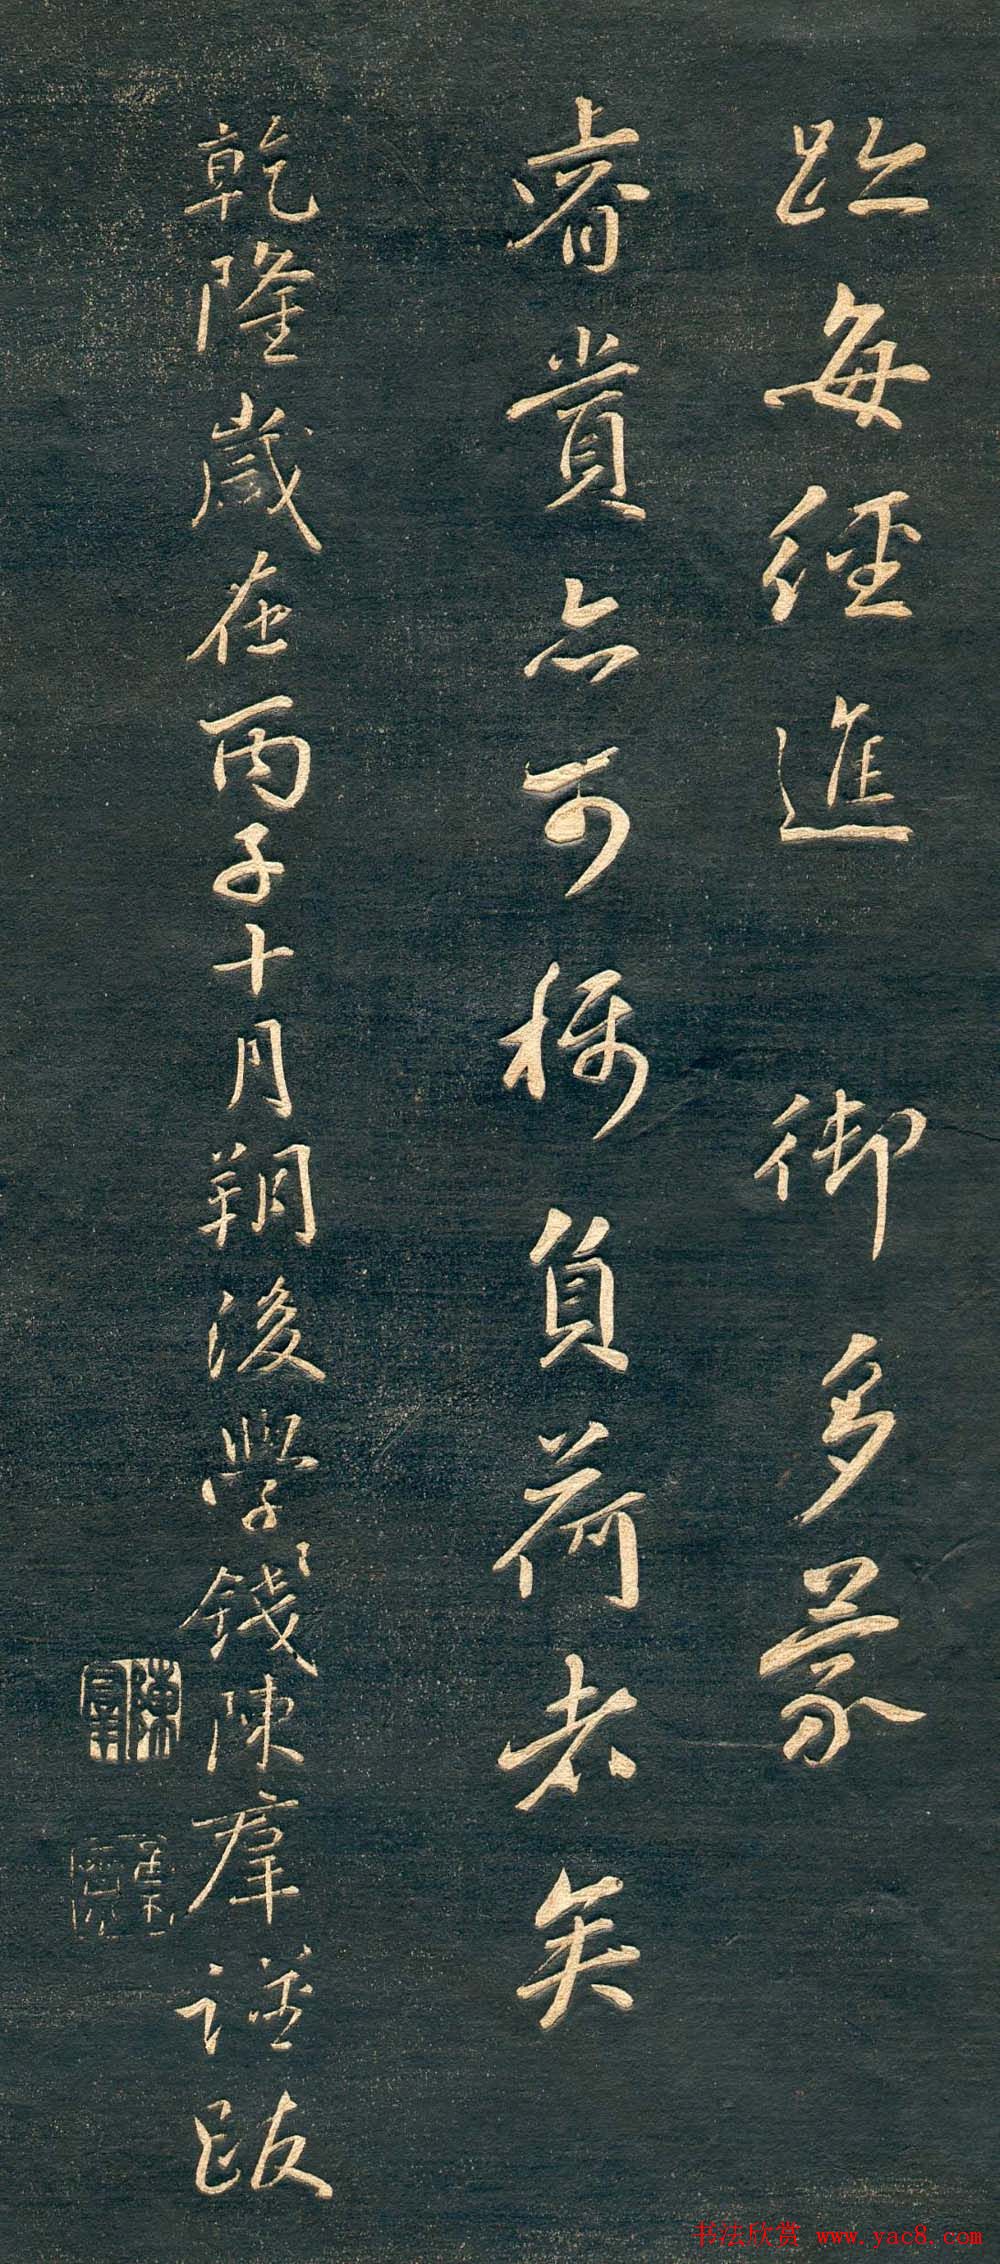 趾每經進 御多蒙
睿賞亦可稱負荷者矣
乾隆歲在丙子十月朔後學錢陳羣謹跋
陳羣
书法欣赏 www.yac8.com